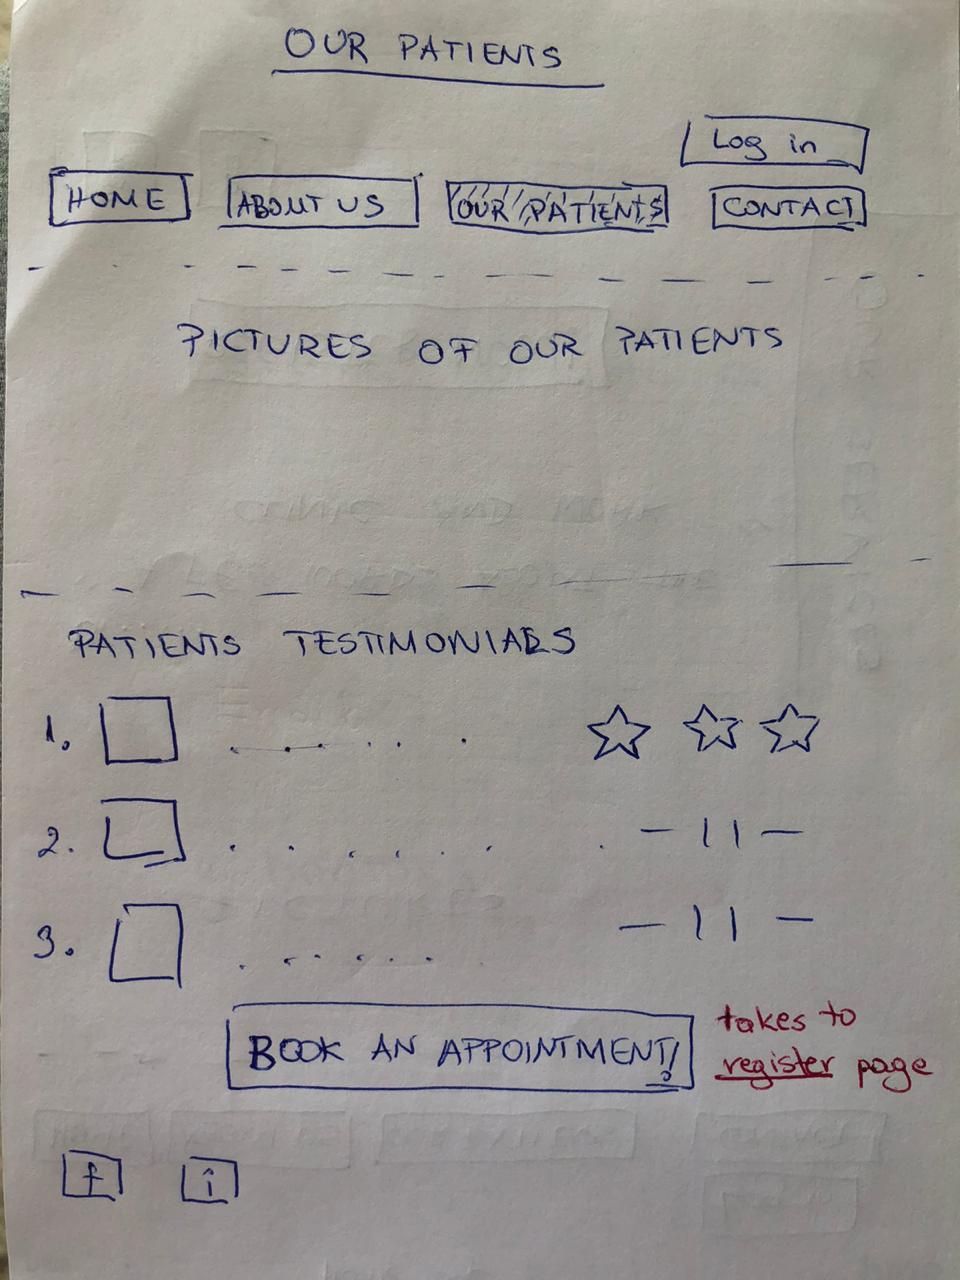 OUR PATIENTS
Log in
HOME ABOUT US OUR PATIENTS CONTACT
PICTURES OF OUR PATIENTS
PATIENTS TESTIMONIALS
1.
2. - | | -
3. - | | -
BOOK AN APPOINTMENT!
takes to
register page
f i